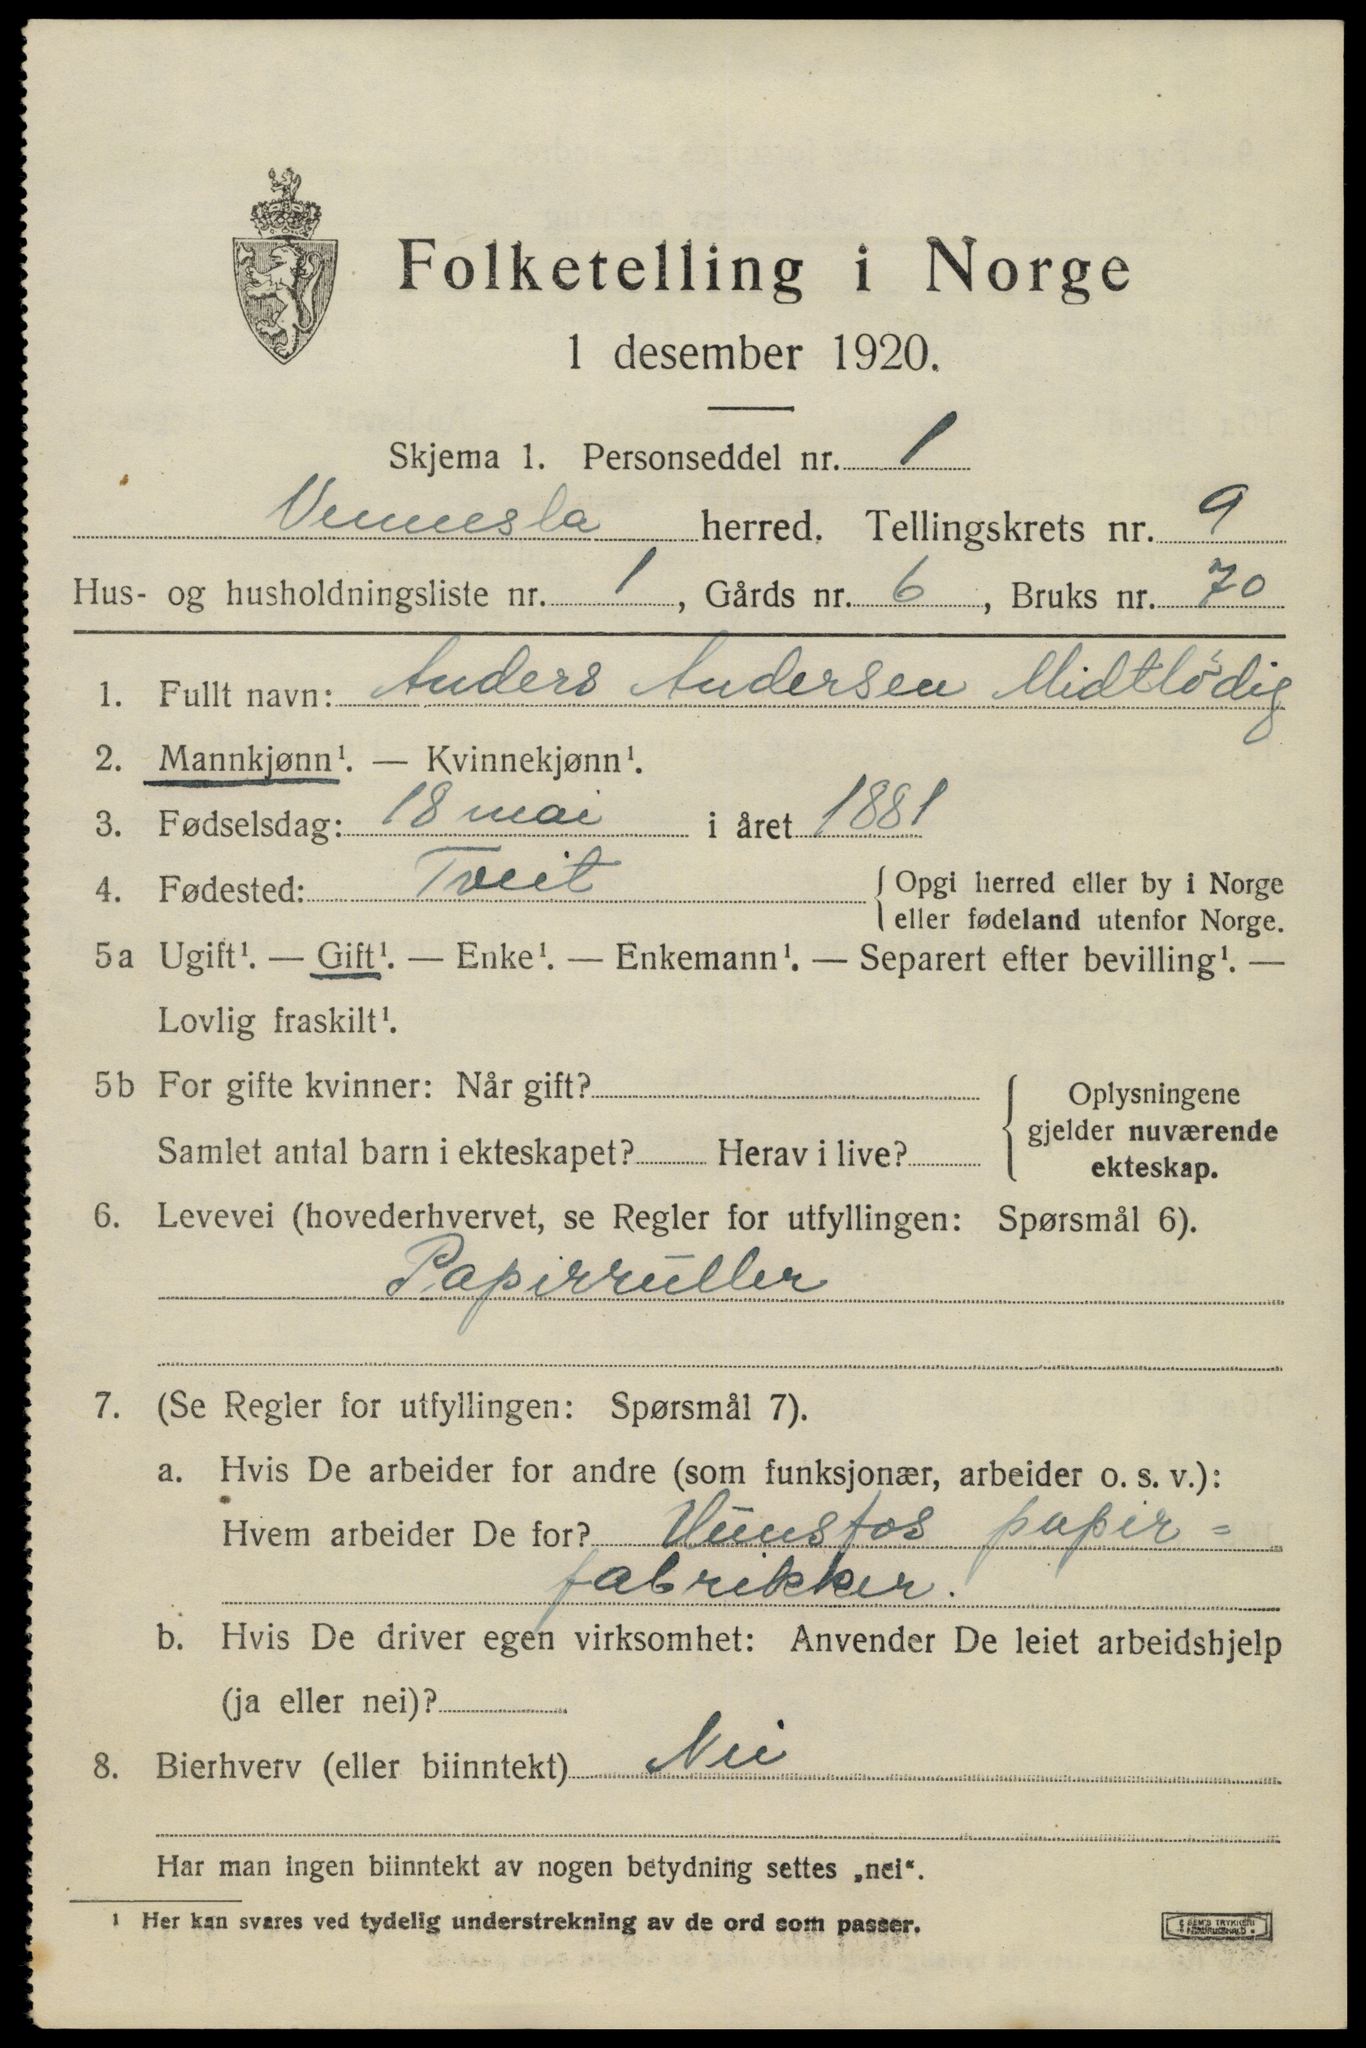 Folketelling i Norge
1 desember 1920.
Skjema 1. Personseddel nr. 1
Vennesla herred. Tellingskrets nr. 9
Hus- og husholdningsliste nr. 1, Gårds nr. 6, Bruks nr. 70
1. Fullt navn: Anders Andersen Midtlödig
2. Mannkjønn¹. — Kvinnekjønn¹.
3. Fødselsdag: 18 mai i året 1881
4. Fødested: Tveit {Opgi herred eller by i Norge
eller fødeland utenfor Norge.
5a Ugift¹. — Gift¹. — Enke¹. — Enkemann¹. — Separert efter bevilling¹. —
Lovlig fraskilt¹.
5b For gifte kvinner: Når gift?
Samlet antal barn i ekteskapet? Herav i live?
Oplysningene
gjelder nuværende
ekteskap.
6. Levevei (hovederhvervet, se Regler for utfyllingen: Spørsmål 6).
Papirruller
7. (Se Regler for utfyllingen: Spørsmål 7).
a. Hvis De arbeider for andre (som funksjonær, arbeider o. s. v.):
Hvem arbeider De for? Hunsfos papir=
fabrikker.
b. Hvis De driver egen virksomhet: Anvender De leiet arbeidshjelp
(ja eller nei)?
8. Bierhverv (eller biinntekt) Nei
Har man ingen biinntekt av nogen betydning settes „nei“.
¹ Her kan svares ved tydelig understrekning av de ord som passer.